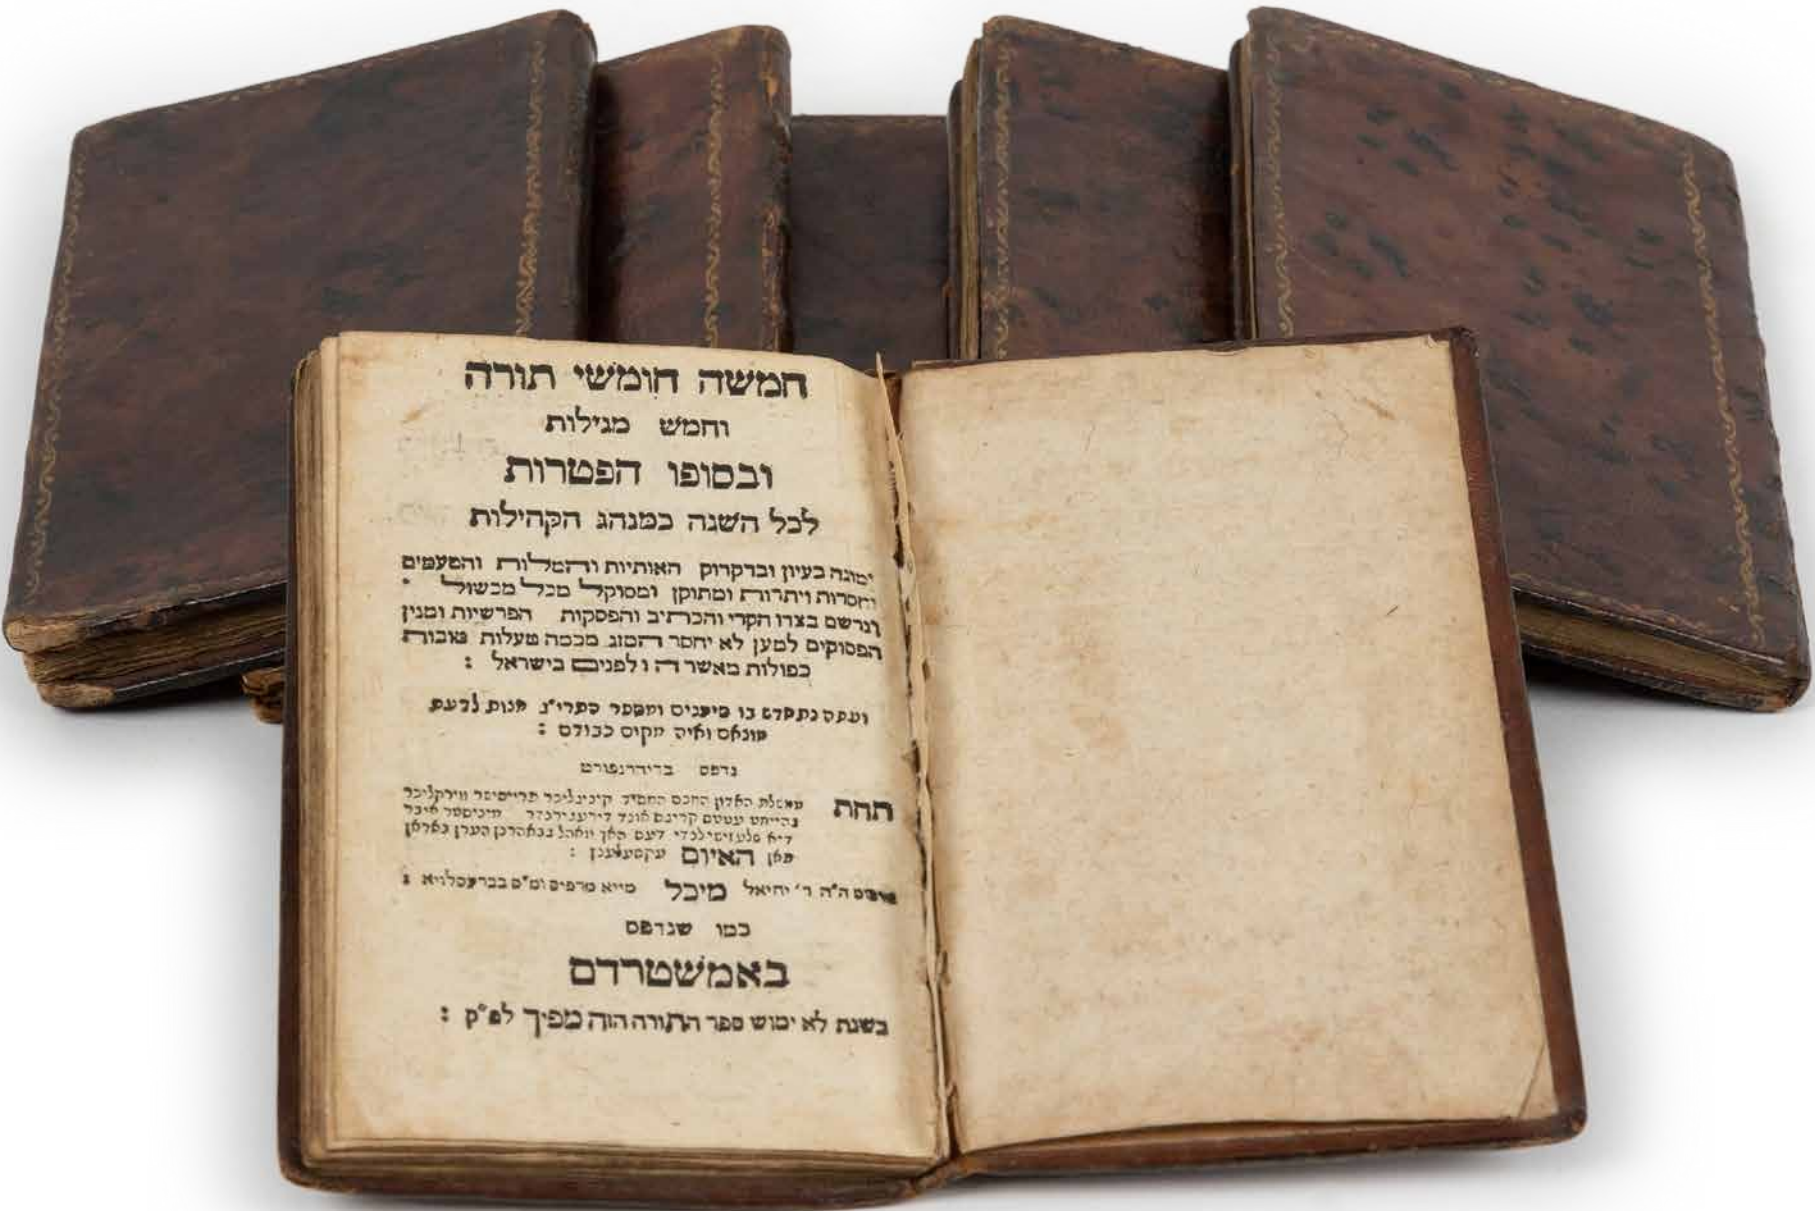 חמשה חומשי תורה
וחמש מגילות
ובסופו הפטרות
לכל השנה כמנהג הקהילות
מוגה בעיון ובדקדוק האותיות והמלות והטעמים
וחסרות ויתרות ומתוקן ומסוקל מכל מכשול
ונרשם בצדו הקרי והכתיב והפסקות הפרשיות ומנין
הפסוקים למען לא יחסר המזג מכמה מעלות טובות
כפולות מאשר היו לפנים בישראל :
ועתה נתחדש בו סימנים ומספר התרי"ג מצות לדעת
מוצאם ואיה מקום כבודם :
נדפס בדיהרנפורט
תחת ממשלת האדון החכם החסיד קיניגליכר פרייסישר ווירקליכר
געהיימט עטטס קריגס אונד דיריגירנדר מיניסטר איבר
דיא סלעזישי לנדי דעס האן וואהל געבאהרנן הערן באראן
פאן האיום עקסעלענץ :
ה"ה ר' יחיאל מיכל מייא מדפיס ומ"ס בברעסלויא :
כמו שנדפס
באמשטרדם
בשנת לא ימוש ספר התורה הזה מפיך לפ"ק :